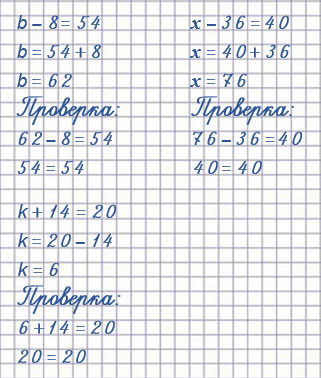 b – 8 = 54
b = 54 + 8
b = 62
Проверка:
62 – 8 = 54
54 = 54
x – 36 = 40
x = 40 + 36
x = 76
Проверка:
76 – 36 = 40
40 = 40
k + 14 = 20
k = 20 – 14
k = 6
Проверка:
6 + 14 = 20
20 = 20